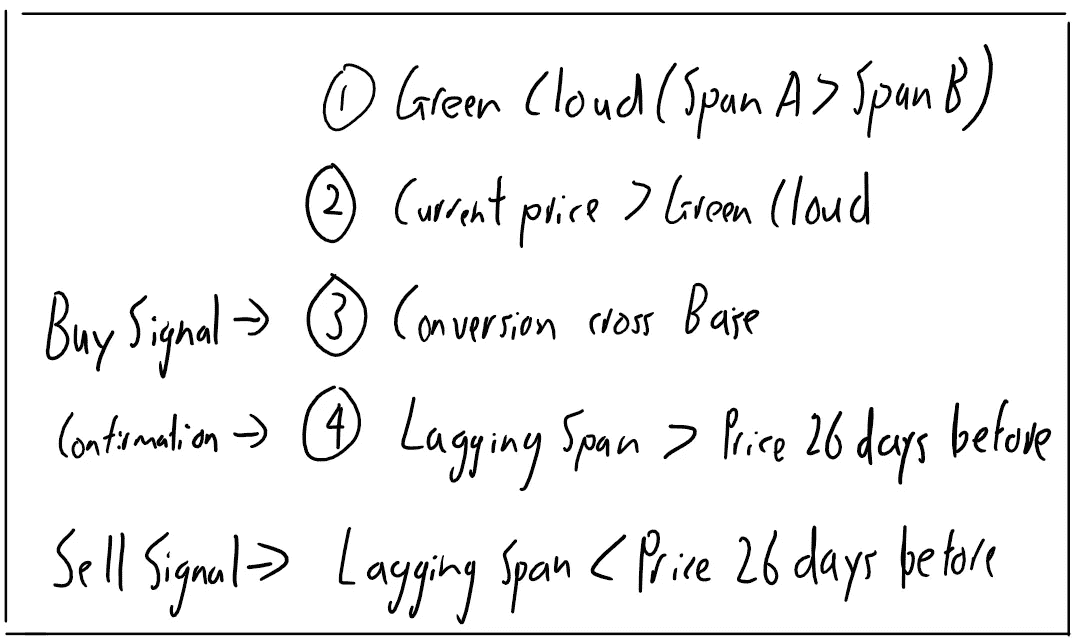 ① Green Cloud (Span A > Span B)
② Current price > Green Cloud
Buy Signal → ③ Conversion cross Base
Confirmation → ④ Lagging Span > Price 26 days before
Sell Signal → Lagging Span < Price 26 days before